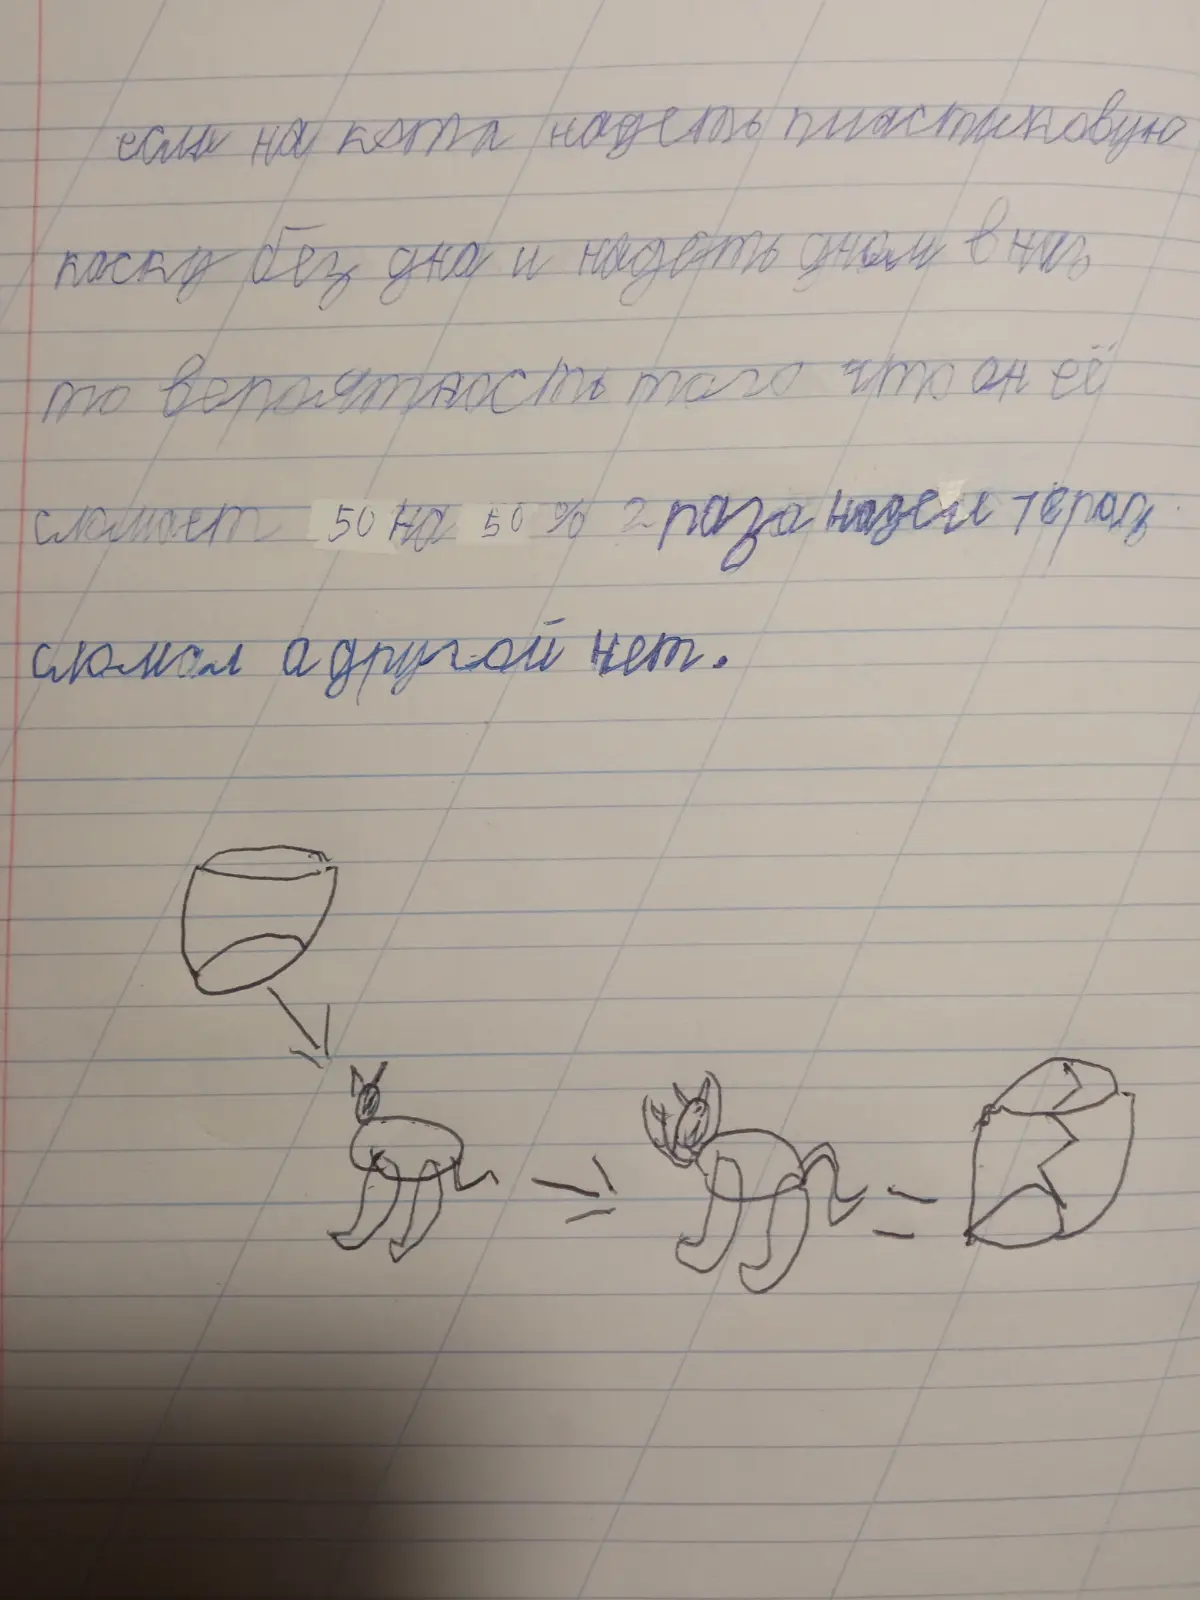 если на кота надеть пластиковую
каску без дна и надеть дном в низ
то вероятность того что он её
сломает 50 на 50 % 2 раза надел 1 ераз
сломал а другой нет.